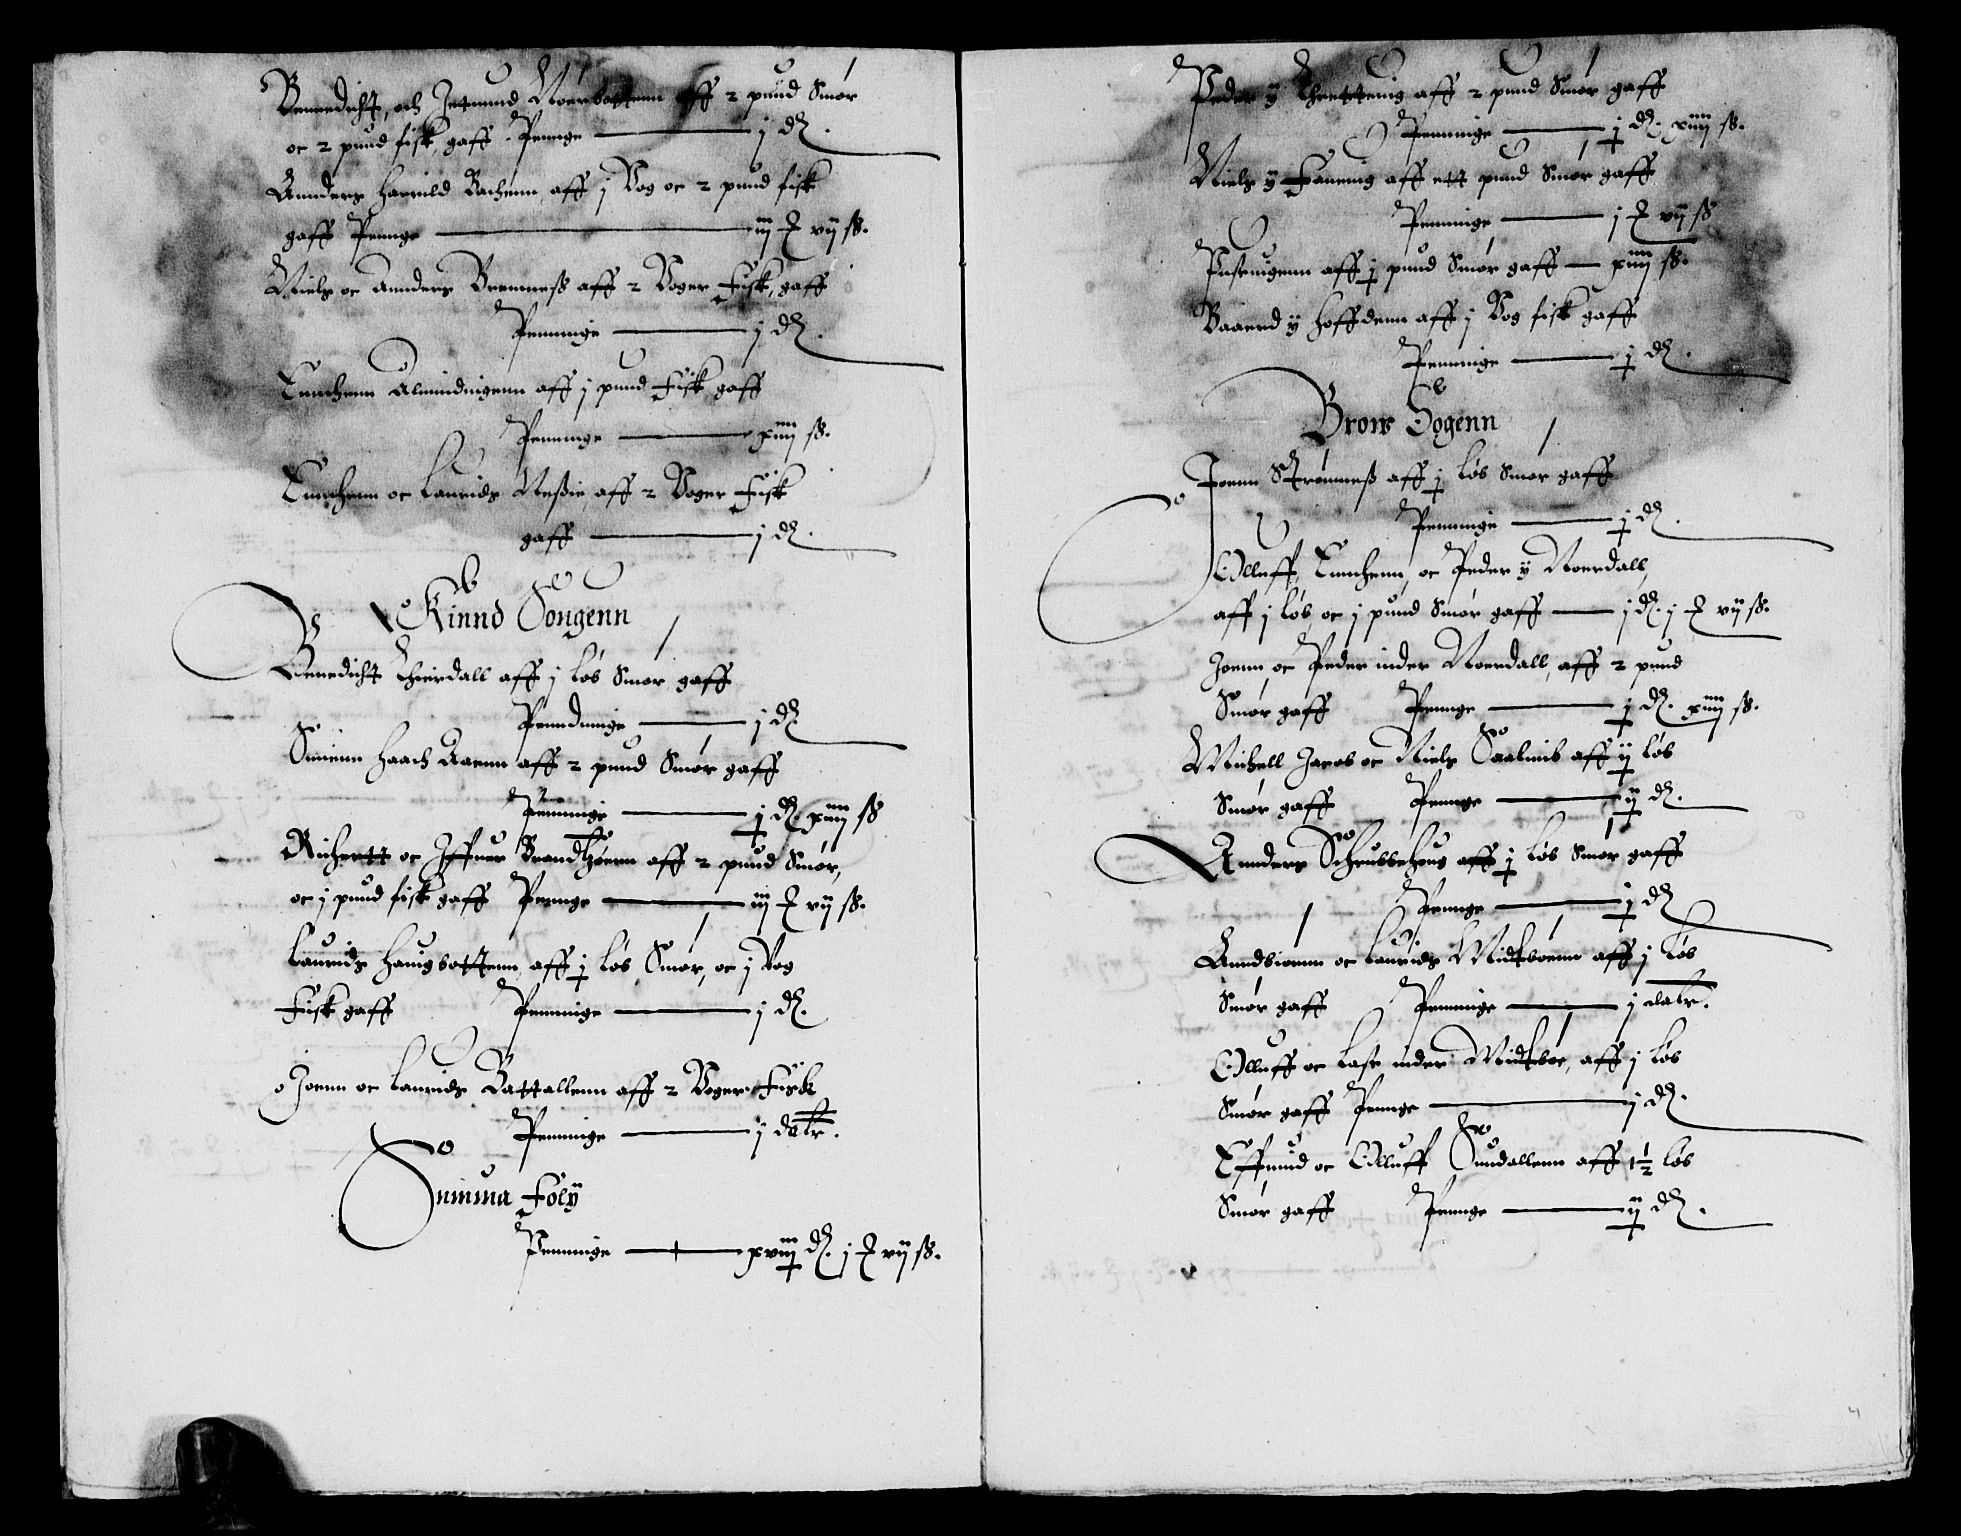 Benedicht, och Jetmund Noerbottenn aff 2 pund Smør
oc 2 pund fisk, gaff Pennge — j dr.
Annders Harrild Bachenn, aff j Vog oc 2 pund fisk
gaff Pennge — iij ℥ vij ß.
Niels oc Annders Bremneß aff 2 Voger Fisk, gaff
Penninge — j dr.
Einchenn Almindnigenn aff j pund Fisk gaff
Penninge — xiiij ß.
Einchenn oc Laurids Neßie, aff 2 Voger Fisk
gaff — j dr.
Kinnd Songenn
Benedicht Thierdall aff j løb Smør gaff
Penndninge — j dr
Simenn Haach Aaenn aff 2 pund Smør gaff
Penninge — j dr. xiiij ß
Richertt oc Iffuer Brandhøenn aff 2 pund Smør,
oc j pund fisk gaff Pennge — iij ℥ vij ß.
Laurids Haugbottenn, aff j løb Smør, oc j Vog
Fisk gaff Penninge — j dr.
Joenn oc Laurids Battallenn aff 2 Voger Fisk
Penninge — j dalr.
Summa Foly
Penninge — xviiij dr. j ℥ vij ß.
Peder y Threttenig aff 2 pund Smør gaff
Penninge — j dr. xiiij ß.
Niels y Fannenig aff ett pund Smør gaff
Penninge — j ℥ vij ß
aff j pund Smør gaff — xiiij ß.
Baaerd y Hoffdenn aff j Vog fisk gaff
Penninge — j dr.
Brow Sogenn
Joenn Strømneß aff j løb Smør gaff
Penninge — j dr.
Olluff, Einchenn, oc Peder y Noerdall,
aff j løb, oc j pund Smør gaff — j dr. j ℥ vij ß.
Joenn, oc Peder inder Noerdall, aff 2 pund
Smør gaff Pennge — j dr. xiiij ß.
Michell Jacob oc Niels Saalmib aff ij løb
Smør gaff Pennge — ij dr.
Annders Schrubbehoug aff j løb Smør gaff
Pennge — j dr
Anndbiørnn oc Laurids Midtbøenn aff j løb
Smør gaff Penninge — j dalr.
Olluff oc Lasse inder Midtbøe, aff j løb
Smør gaff Pennge — j dr.
Effmund oc Olluff Sundallenn aff 1½ løb
Smør gaff Pennge — ij dr.
4